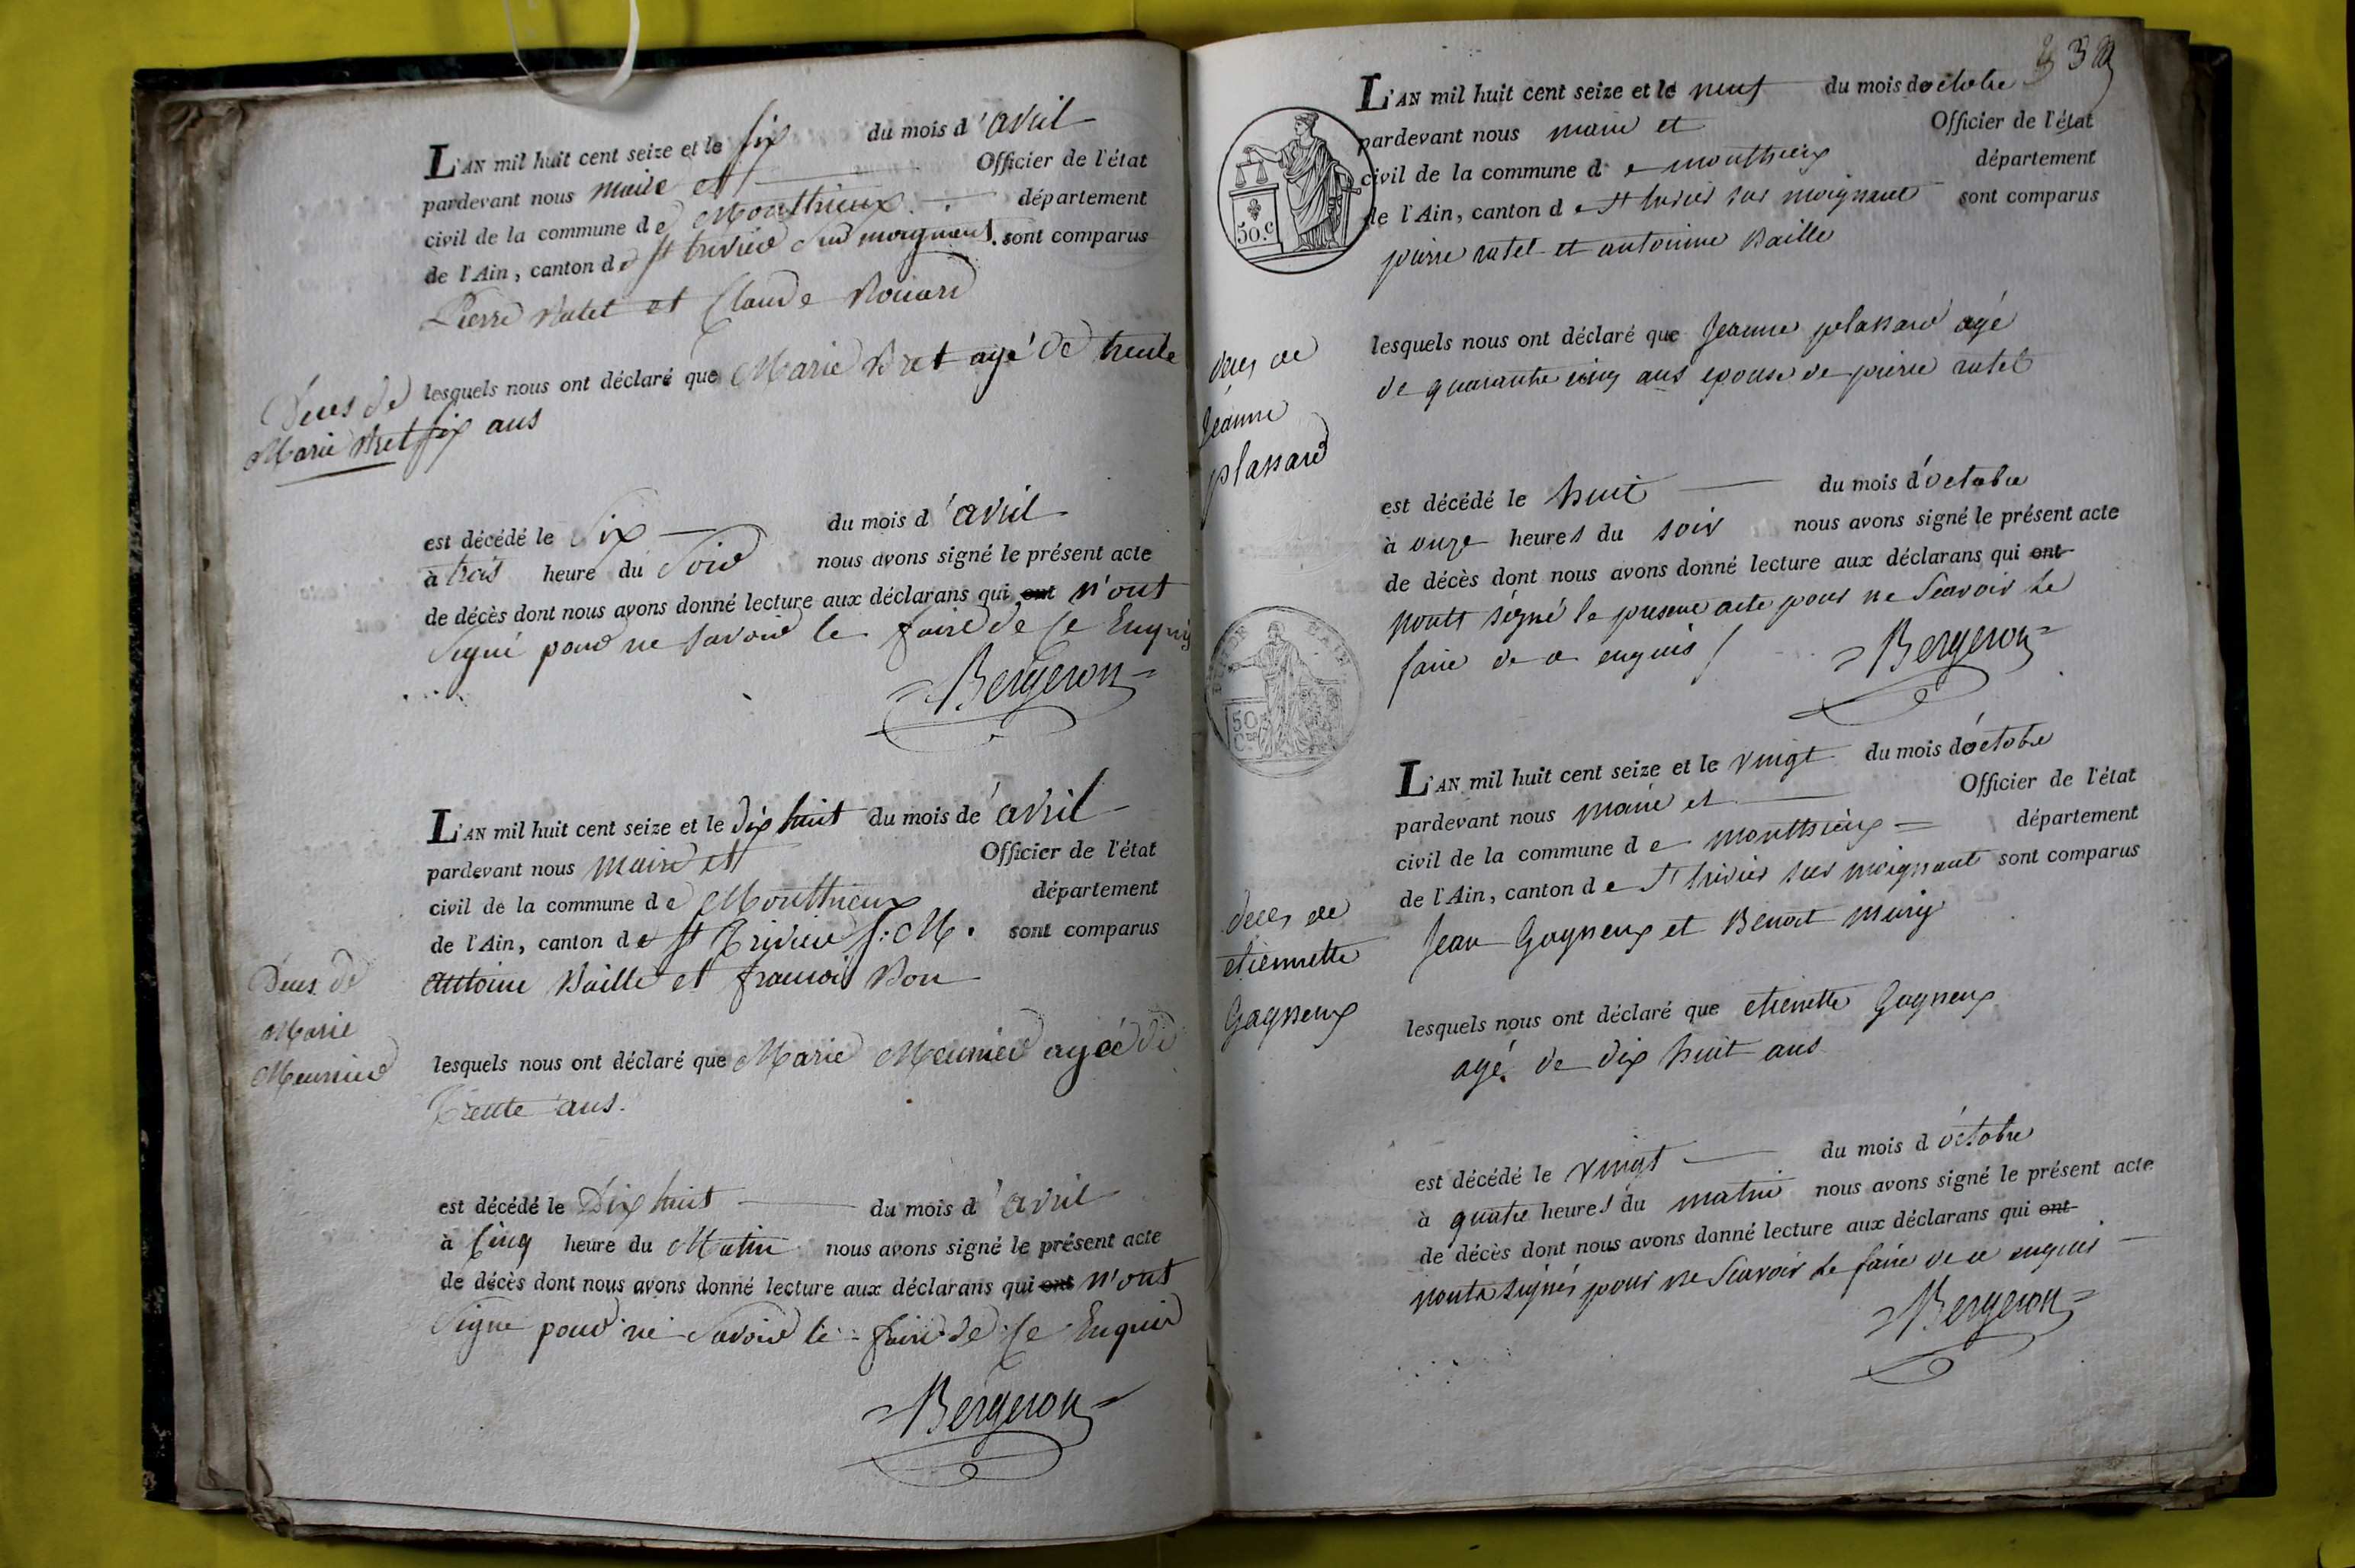 L'AN mil huit cent seize et le six du mois d'avril
pardevant nous maire et Officier de l'état
civil de la commune de Monthieux département
de l'Ain, canton de st trivier sur moignans sont comparus
Pierre Ratet et Claude
lesquels nous ont déclaré que Marie Bret agé de trente
Déces de
Marie Bret
six ans
est décédé le Six du mois d'avril
à trois heure du Soir nous avons signé le présent acte
de décès dont nous avons donné lecture aux déclarans qui ont n'ont
Signé pour ne savoir le faire de ce Enquis
Bergeron
L'AN mil huit cent seize et le dix huit du mois de avril
pardevant nous maire et Officier de l'état
civil de la commune de Monthieux département
de l'Ain, canton de st Trivier s: M. sont comparus
antoine Baille et francois Bon
Déces de
Marie
Meunier
lesquels nous ont déclaré que Marie Meunier agée de
Trente ans.
est décédé le Dix huit du mois d'avril
à Cinq heure du Matin nous avons signé le présent acte
de décès dont nous avons donné lecture aux déclarans qui ont n'ont
Signé pour ne Savoir le faire de ce Enquis
Bergeron
L'AN mil huit cent seize et le neuf du mois doctobre
pardevant nous maire et Officier de l'état
civil de la commune de monthieux département
de l'Ain, canton de st trivier sur moignant sont comparus
50.c
pierre ratel et antoinne Baille
deces de
Jeanne
plassard
lesquels nous ont déclaré que Jeanne plassard agé
de quarante cinq ans epouse de pierre ratel
est décédé le huit du mois d'octobre
à onze heures du soir nous avons signé le présent acte
de décès dont nous avons donné lecture aux déclarans qui ont
nonts signé le present acte pour ne Scavoir le
faire de ce enquis
Bergeron
50
L'AN mil huit cent seize et le vingt du mois d'octobre
pardevant nous maire et Officier de l'état
civil de la commune de monthieux département
de l'Ain, canton de st trivier sur moignant sont comparus
Jean Gagneux et Benoit
deces de
etiennette
Gagneux
lesquels nous ont déclaré que etienette Gagneux
agé de dix huit ans
est décédé le vingt du mois d'octobre
à quatre heures du matin nous avons signé le présent acte
de décès dont nous avons donné lecture aux déclarans qui ont
nonts signés pour ne Scavoir le faire de ce enquis
Bergeron